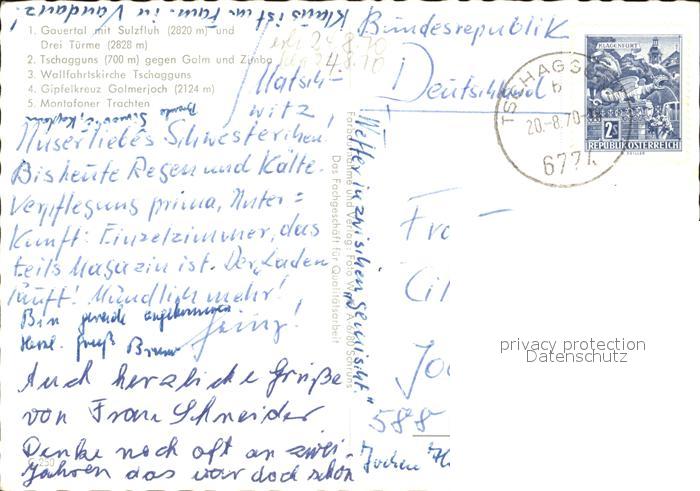 Klaus ist m. Fam. in Vandanz!
1. Gauertal mit Sulzfluh (2820 m) und
Drei Türme (2828 m)
2. Tschagguns (700 m) gegen Golm und Zimba
3. Wallfahrtskirche Tschagguns
4. Gipfelkreuz Golmerjoch (2124 m)
5. Montafoner Trachten
24.8.70
Matsch-
witz,
Unser liebes Schwesterchen!
Bis heute Regen und Kälte.
Verpflegung prima, Unter=
kunft: Einzelzimmer, das
teils Magazin ist. Der Laden
läuft! Mündlich mehr!
Bin gerade angekommen
Herzl. Gruß
Auch herzliche Grüße
von Frau Schneider
Denke noch oft an zwei
Jahren das war doch schön
G 250
Wetter inzwischen "gemischt."
Das Fachgeschäft für Qualitätsarbeit
Farbaufnahme und Verlag: Foto A-6780 Schruns
Bundesrepublik
Deutschland
TSCHAGGUNS
b
20.-8.70-
6774
KLAGENFURT
2S
REPUBLIK ÖSTERREICH
Fr
588
Jochen
privacy protection
Datenschutz